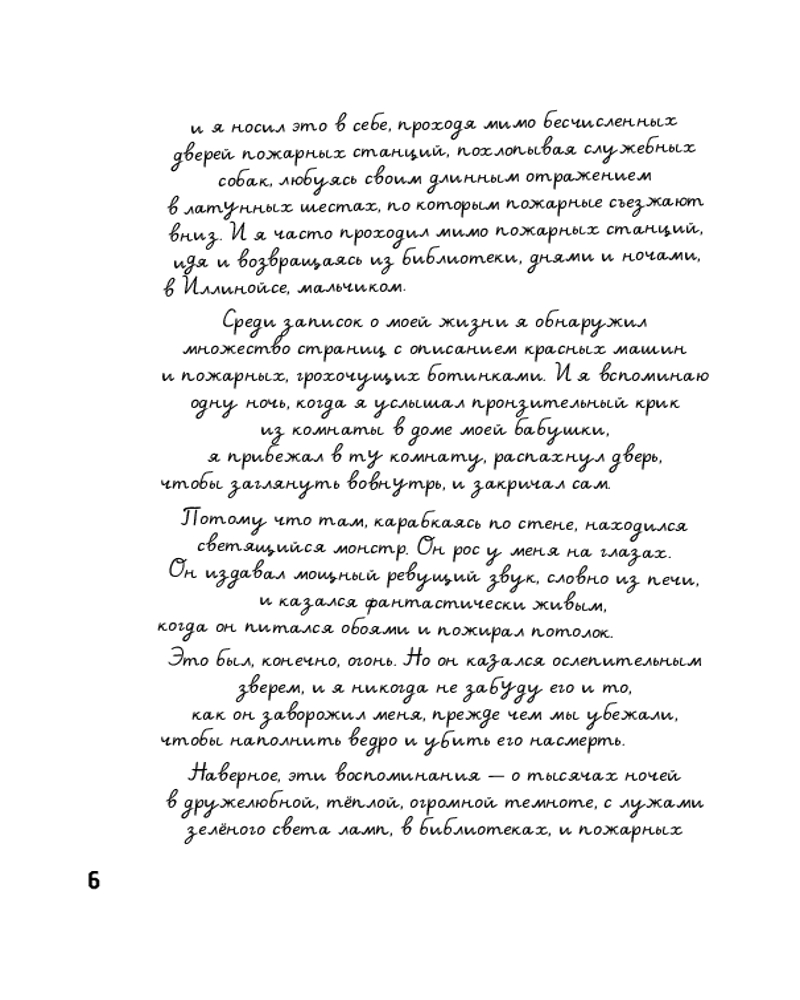 и я носил это в себе, проходя мимо бесчисленных
дверей пожарных станций, похлопывая служебных
собак, любуясь своим длинным отражением
в латунных шестах, по которым пожарные съезжают
вниз. И я часто проходил мимо пожарных станций,
идя и возвращаясь из библиотеки, днями и ночами,
в Иллинойсе, мальчиком.
Среди записок о моей жизни я обнаружил
множество страниц с описанием красных машин
и пожарных, грохочущих ботинками. И я вспоминаю
одну ночь, когда я услышал пронзительный крик
из комнаты в доме моей бабушки,
я прибежал в ту комнату, распахнул дверь,
чтобы заглянуть вовнутрь, и закричал сам.
Потому что там, карабкаясь по стене, находился
светящийся монстр. Он рос у меня на глазах.
Он издавал мощный ревущий звук, словно из печи,
и казался фантастически живым,
когда он питался обоями и пожирал потолок.
Это был, конечно, огонь. Но он казался ослепительным
зверем, и я никогда не забуду его и то,
как он заворожил меня, прежде чем мы убежали,
чтобы наполнить ведро и убить его насмерть.
Наверное, эти воспоминания — о тысячах ночей
в дружелюбной, тёплой, огромной темноте, с лужами
зелёного света ламп, в библиотеках, и пожарных
6